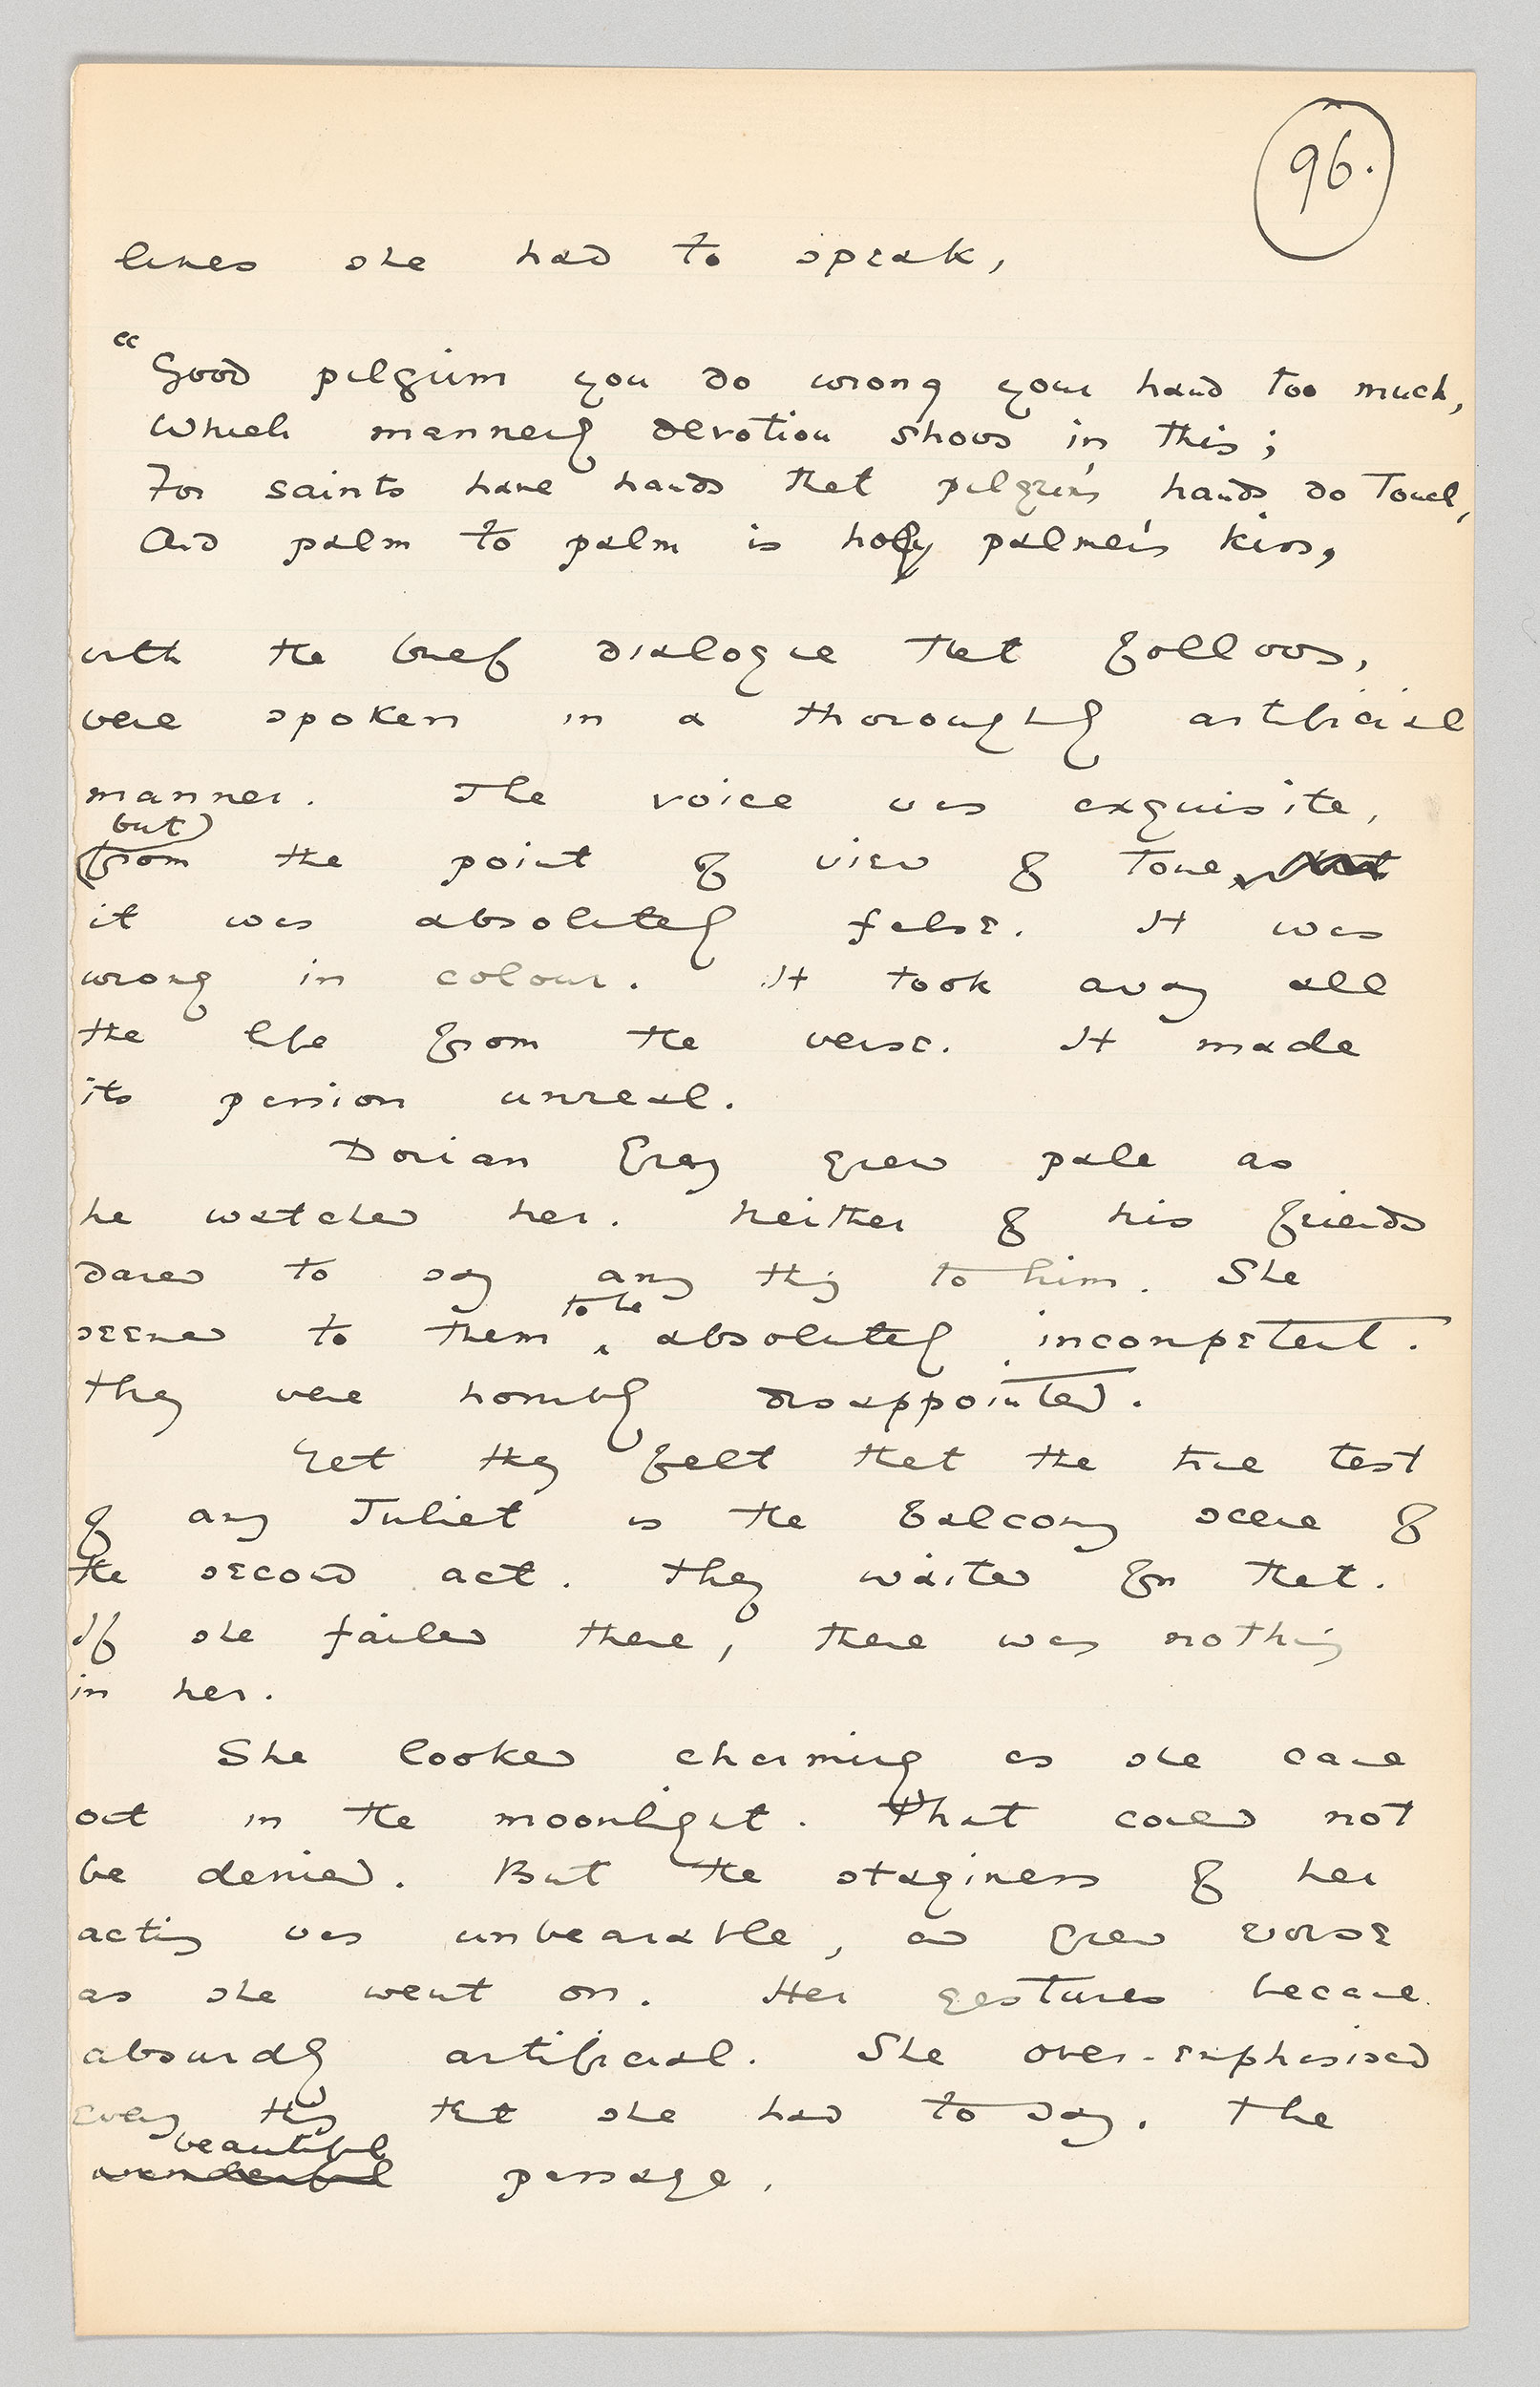 96.
lines she had to speak,
"Good pilgrim you do wrong your hand too much,
Which mannerly devotion shows in this;
For saints have hands that pilgrim's hands do touch,
And palm to palm is holy palmer's kiss,
with the brief dialogue that follows,
were spoken in a thoroughly artificial
manner. The voice was exquisite,
but
from the point of view of tone,
it was absolutely false. It was
wrong in colour. It took away all
the life from the verse. It made
its passion unreal.
Dorian Gray grew pale as
he watched her. Neither of his friends
dared to say any thing to him. She
to be
seemed to them ‸ absolutely incompetent.
They were horribly disappointed.
Yet they felt that the true test
of any Juliet is the balcony scene of
the second act. They waited for that.
If she failed there, there was nothing
in her.
She looked charming as she came
out in the moonlight. That could not
be denied. But the staginess of her
acting was unbearable, and grew worse
as she went on. Her gestures became
absurdly artificial. She over-emphasised
every thing that she had to say. The
beautiful
wonderful passage,